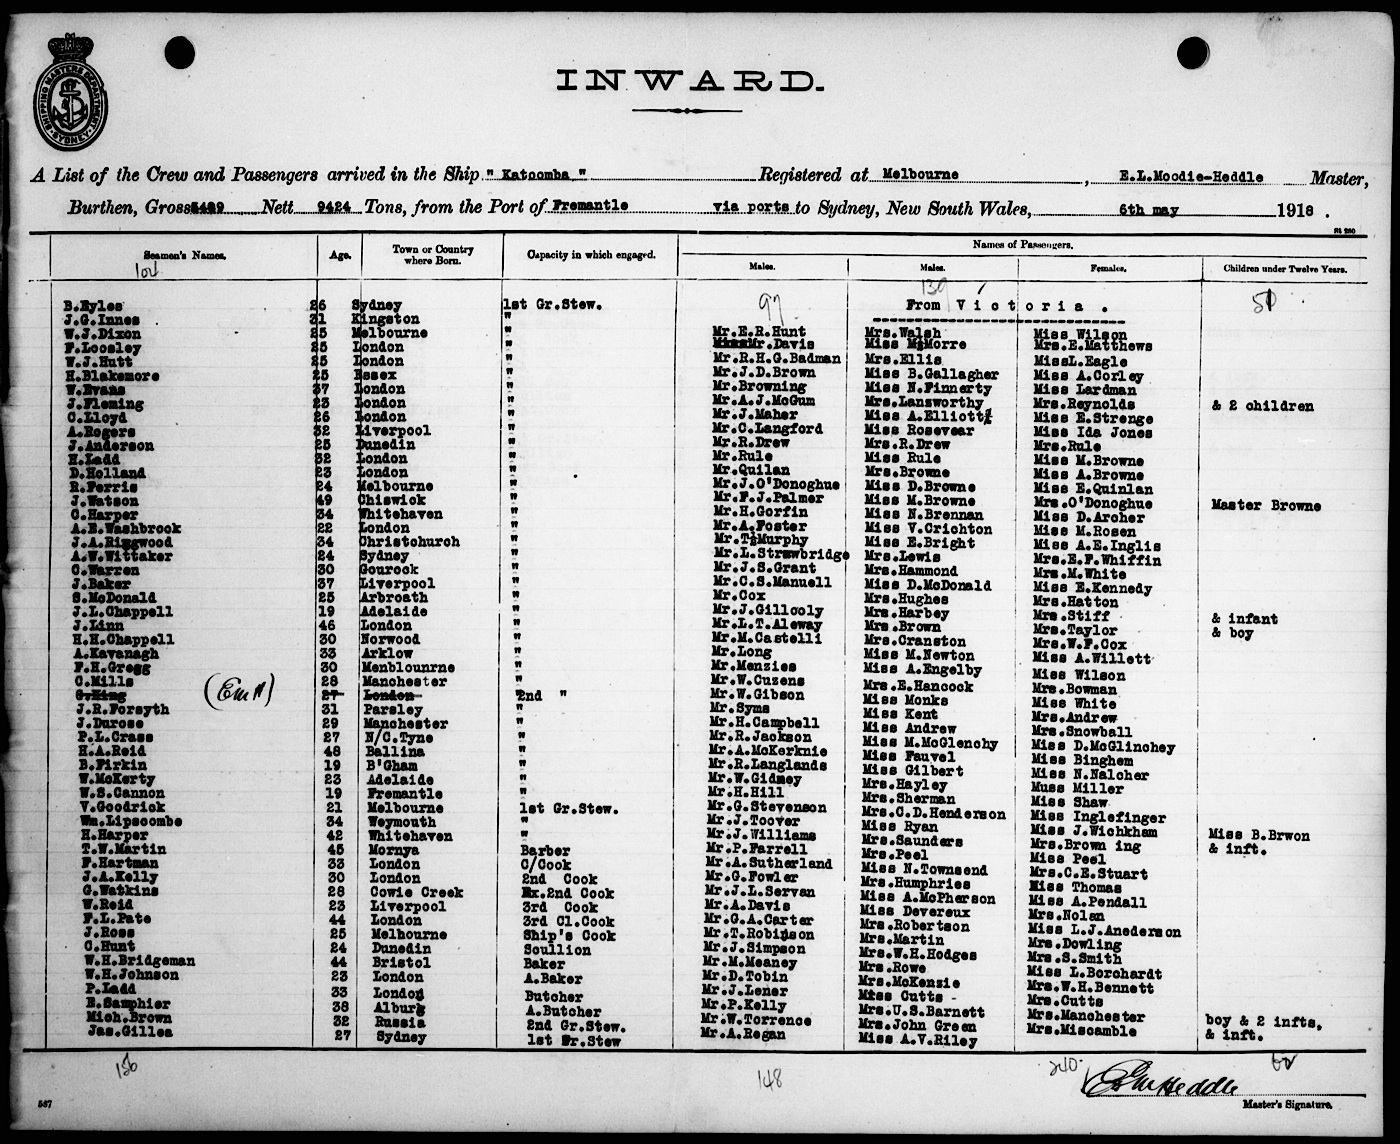 SHIPPING MASTERS DEPARTMENT
SYDNEY
INWARD.
A List of the Crew and Passengers arrived in the Ship " Katoomba " Registered at Melbourne , E.L.Moodie-Heddle Master,
Burthen, Gross Nett 9424 Tons, from the Port of Fremantle via ports to Sydney, New South Wales, 6th may 1918 .
Seamen's Names. Age. Town or Country where Born. Capacity in which engaged. Names of Passengers.
Males. Males. Females. Children under Twelve Years.
104 97 139 51
From Victoria .
B.Eyles 26 Sydney 1st Gr.Stew.
J.G.Innes 31 Kingston "
W.J.Dixon 25 Melbourne " Mr.E.R.Hunt Mrs.Walsh Miss Wilson
F.Loosley 25 London " Mr.Davis Miss McMorre Mrs.E.Matthews
W.J.Hutt 25 London " Mr.R.H.G.Badman Mrs.Ellis MissL.Eagle
H.Blakemore 25 Essex " Mr.J.D.Brown Miss B.Gallagher Miss A.Corley
W.Evans 37 London " Mr.Browning Miss N.Finnerty Miss Lardman
J.Fleming 23 London " Mr.A.J.McGum Mrs.Lansworthy Mrs.Reynolds & 2 children
C.Lloyd 26 London " Mr.J.Maher Miss A.Elliott Miss E.Strenge
A.Rogers 32 Liverpool " Mr.C.Langford Miss Rosevear Miss Ida Jones
J.Anderson 25 Dunedin " Mr.R.Drew Mrs.R.Drew Mrs.Rule
H.Ladd 32 London " Mr.Rule Miss Rule Miss M.Browne
D.Holland 23 London " Mr.Quilan Mrs.Browne Miss A.Browne
R.Ferris 24 Melbourne " Mr.J.O'Donoghue Miss D.Browne Miss E.Quinlan
J.Watson 49 Chiswick " Mr.F.J.Palmer Miss M.Browne Mrs.O'Donoghue Master Browne
C.Harper 34 Whitehaven " Mr.H.Gorfin Miss N.Brennan Miss D.Archer
A.E.Washbrook 22 London " Mr.A.Foster Miss V.Crichton Miss M.Rosen
J.A.Ringwood 34 Christchurch " Mr.T.Murphy Miss E.Bright Miss A.E.Inglis
A.W.Wittaker 24 Sydney " Mr.L.Strawbridge Mrs.Lewis Mrs.E.F.Whiffin
C.Warren 30 Gourock " Mr.J.S.Grant Mrs.Hammond Mrs.M.White
J.Baker 37 Liverpool " Mr.C.S.Manuell Miss D.McDonald Miss E.Kennedy
S.McDonald 25 Arbroath " Mr.Cox Mrs.Hughes Mrs.Hatton
J.L.Chappell 19 Adelaide " Mr.J.Gillooly Mrs.Harbey Mrs.Stiff & infant
J.Linn 46 London " Mr.L.T.Aleway Mrs.Brown Mrs.Taylor & boy
H.H.Chappell 30 Norwood " Mr.M.Castelli Mrs.Cranston Mrs.W.F.Cox
A.Kavanagh 33 Arklow " Mr.Long Miss M.Newton Miss A.Willett
F.H.Gregg 30 Menblounrne " Mr.Menzies Miss A.Engelby Miss Wilson
C.Mills 28 Manchester " Mr.W.Cuzens Mrs.E.Hancock Mrs.Bowman
G.King 27 London 2nd " Mr.W.Gibson Miss Monks Miss White
J.R.Forsyth 31 Parsley " Mr.Syms Miss Kent Mrs.Andrew
J.Durose 29 Manchester " Mr.H.Campbell Miss Andrew Mrs.Snowball
P.L.Crass 27 N/C.Tyne " Mr.R.Jackson Miss M.McGlenchy Miss D.McGlinchey
H.A.Reid 48 Ballina " Mr.A.McKerknie Miss Fauvel Miss Binghem
B.Firkin 19 B'Gham " Mr.R.Langlands Miss Gilbert Miss N.Nalcher
W.McKerty 23 Adelaide " Mr.W.Gidney Mrs.Hayley Muss Miller
W.S.Cannon 19 Fremantle " Mr.H.Hill Mrs.Sherman Miss Shaw
V.Goodrick 21 Melbourne 1st Gr.Stew. Mr.G.Stevenson Mrs.C.D.Henderson Miss Inglefinger
Wm.Lipscombe 34 Weymouth " Mr.J.Toover Miss Ryan Miss J.Wichkham Miss B.Brwon
H.Harper 42 Whitehaven " Mr.J.Williams Mrs.Saunders Mrs.Brown ing & inft.
T.W.Martin 45 Mornya Barber Mr.P.Farrell Mrs.Peel Miss Peel
F.Hartman 33 London C/Cook Mr.A.Sutherland Miss N.Townsend Mrs.C.E.Stuart
J.A.Kelly 30 London 2nd Cook Mr.G.Fowler Mrs.Humphries Miss Thomas
G.Watkins 28 Cowie Creek Ex.2nd Cook Mr.J.L.Servan Miss A.McPherson Miss A.Pendall
W.Reid 23 Liverpool 3rd Cook Mr.A.Davis Miss Devereux Mrs.Nolan
F.L.Pate 44 London 3rd Cl.Cook Mr.G.A.Carter Mrs.Robertson Miss L.J.Anederson
J.Ross 25 Melbourne Ship's Cook Mr.T.Robinson Mrs.Martin Mrs.Dowling
C.Hunt 24 Dunedin Scullion Mr.J.Simpson Mrs.W.H.Hodges Mrs.S.Smith
W.H.Bridgeman 44 Bristol Baker Mr.M.Meaney Mrs.Rowe Miss L.Borchardt
W.H.Johnson 23 London A.Baker Mr.D.Tobin Mrs.McKenzie Mrs.W.H.Bennett
P.Ladd 33 London Butcher Mr.J.Lener Miss Cutts - Mrs.Cutts
E.Samphier 38 Alburg A.Butcher Mr.P.Kelly Mrs.U.S.Barnett Mrs.Manchester boy & 2 infts.
Mich.Brown 32 Russia 2nd Gr.Stew. Mr.W.Torrence Mrs.John Green Mrs.Miscamble & inft.
Jas.Gilles 27 Sydney 1st Gr.Stew Mr.A.Regan Miss A.V.Riley
156 148 240
Master's Signature.
567